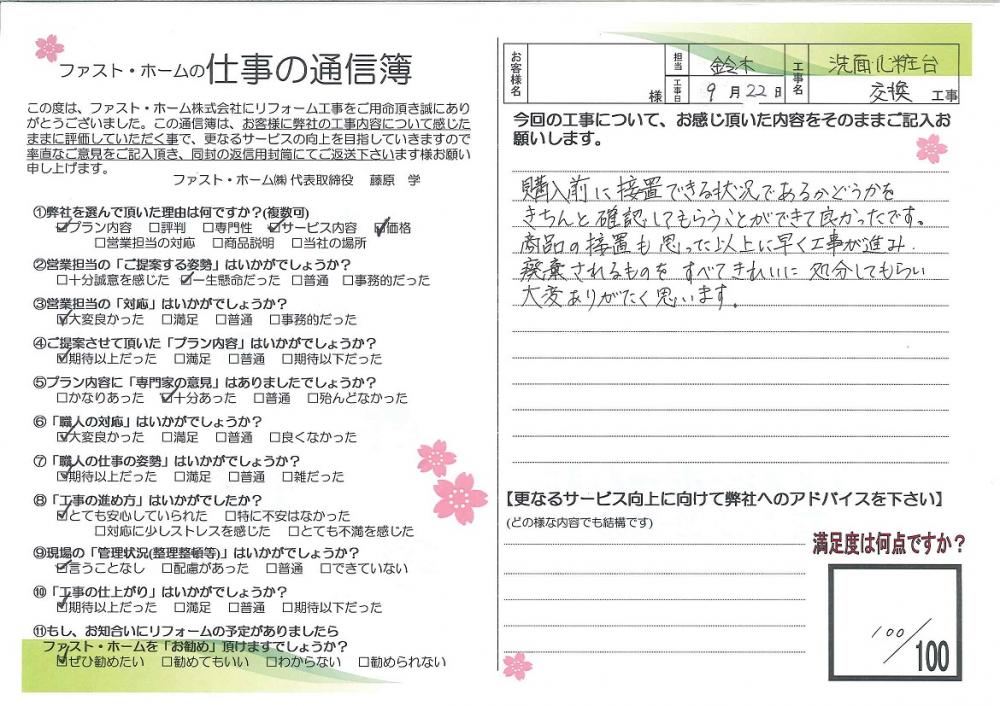 ファスト・ホームの仕事の通信簿
この度は、ファスト・ホーム株式会社にリフォーム工事をご用命頂き誠にあり
がとうございました。この通信簿は、お客様に弊社の工事内容について感じた
ままに評価していただく事で、更なるサービスの向上を目指していきますので
率直なご意見をご記入頂き、同封の返信用封筒にてご返送下さいます様お願い
申し上げます。
ファスト・ホーム㈱ 代表取締役 藤原 学
①弊社を選んで頂いた理由は何ですか？(複数可)
☑プラン内容 □評判 □専門性 ☑サービス内容 ☑価格
□営業担当の対応 □商品説明 □当社の場所
②営業担当の「ご提案する姿勢」はいかがでしょうか？
□十分誠意を感じた ☑一生懸命だった □普通 □事務的だった
③営業担当の「対応」はいかがでしょうか？
☑大変良かった □満足 □普通 □事務的だった
④ご提案させて頂いた「プラン内容」はいかがでしょうか？
☑期待以上だった □満足 □普通 □期待以下だった
⑤プラン内容に「専門家の意見」はありましたでしょうか？
□かなりあった ☑十分あった □普通 □殆んどなかった
⑥「職人の対応」はいかがでしょうか？
☑大変良かった □満足 □普通 □良くなかった
⑦「職人の仕事の姿勢」はいかがでしょうか？
☑期待以上だった □満足 □普通 □雑だった
⑧「工事の進め方」はいかがでしたか？
☑とても安心していられた □特に不安はなかった
□対応に少しストレスを感じた □とても不満を感じた
⑨現場の「管理状況(整理整頓等)」はいかがでしょうか？
☑言うことなし □配慮があった □普通 □できていない
⑩「工事の仕上がり」はいかがでしょうか？
☑期待以上だった □満足 □普通 □期待以下だった
⑪もし、お知合いにリフォームの予定がありましたら
ファスト・ホームを「お勧め」頂けますでしょうか？
☑ぜひ勧めたい □勧めてもいい □わからない □勧められない
お客様名 様 担当 鈴木 工事名 洗面化粧台
工事日 9月22日 交換 工事
今回の工事について、お感じ頂いた内容をそのままご記入お
願いします。
購入前に接置できる状況であるかどうかを
きちんと確認してもらうことができて良かったです。
商品の接置も思った以上に早く工事が進み、
廃棄されるものをすべてきれいに処分してもらい
大変ありがたく思います。
【更なるサービス向上に向けて弊社へのアドバイスを下さい】
(どの様な内容でも結構です)
満足度は何点ですか？
100/100